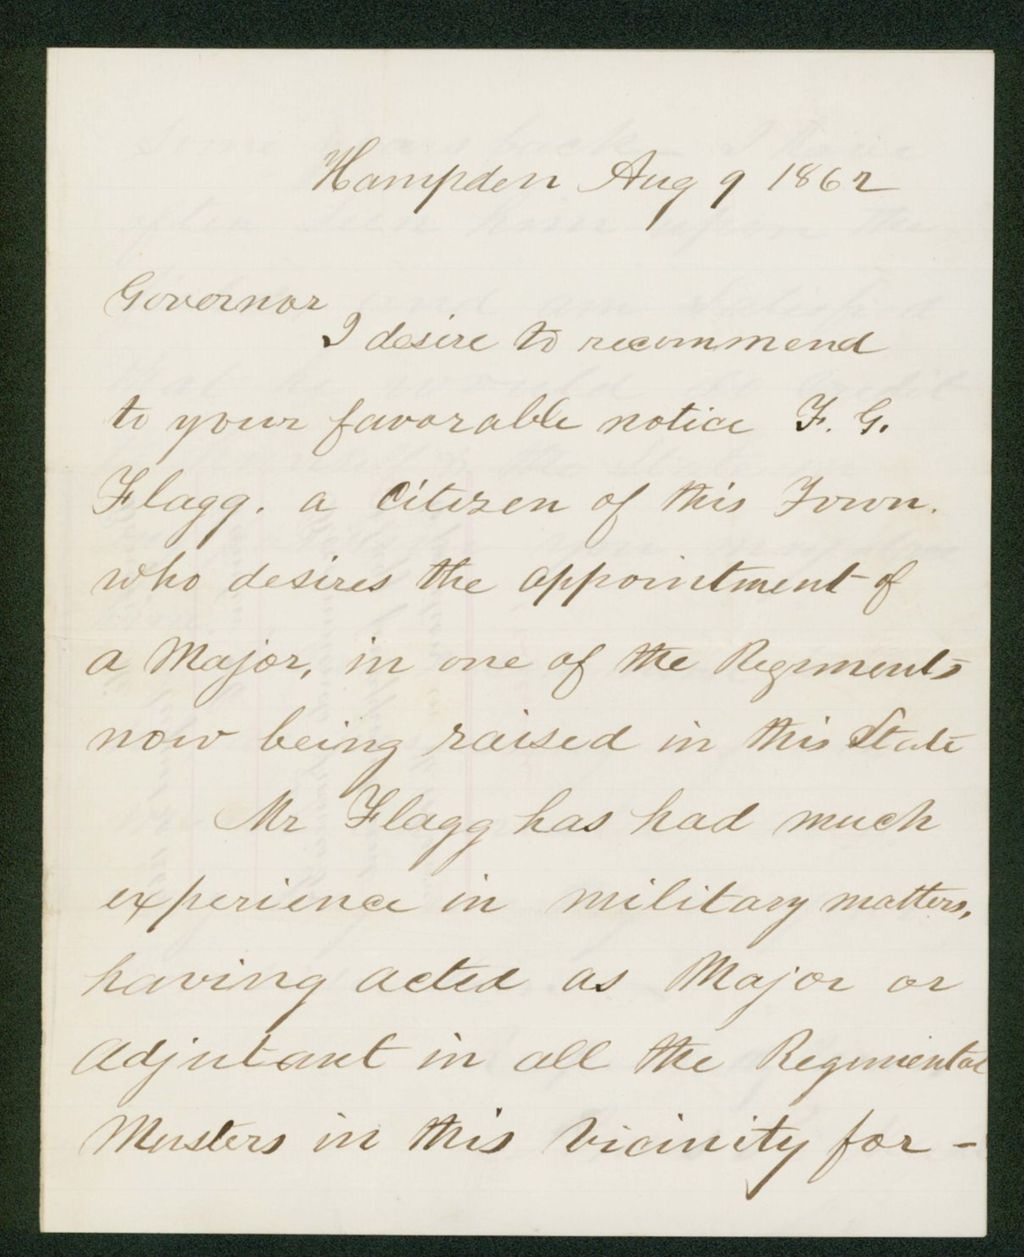 Hampden Aug 9 1862
Governor
I desire to recommend
to your favorable notice F. G.
Flagg. a Citizen of this Town.
who desires the appointment of
a Major, in one of the Regiments
now being raised in this State
Mr Flagg has had much
experience in military matters,
having acted as Major or
Adjutant in all the Regimental
Musters in this vicinity for -